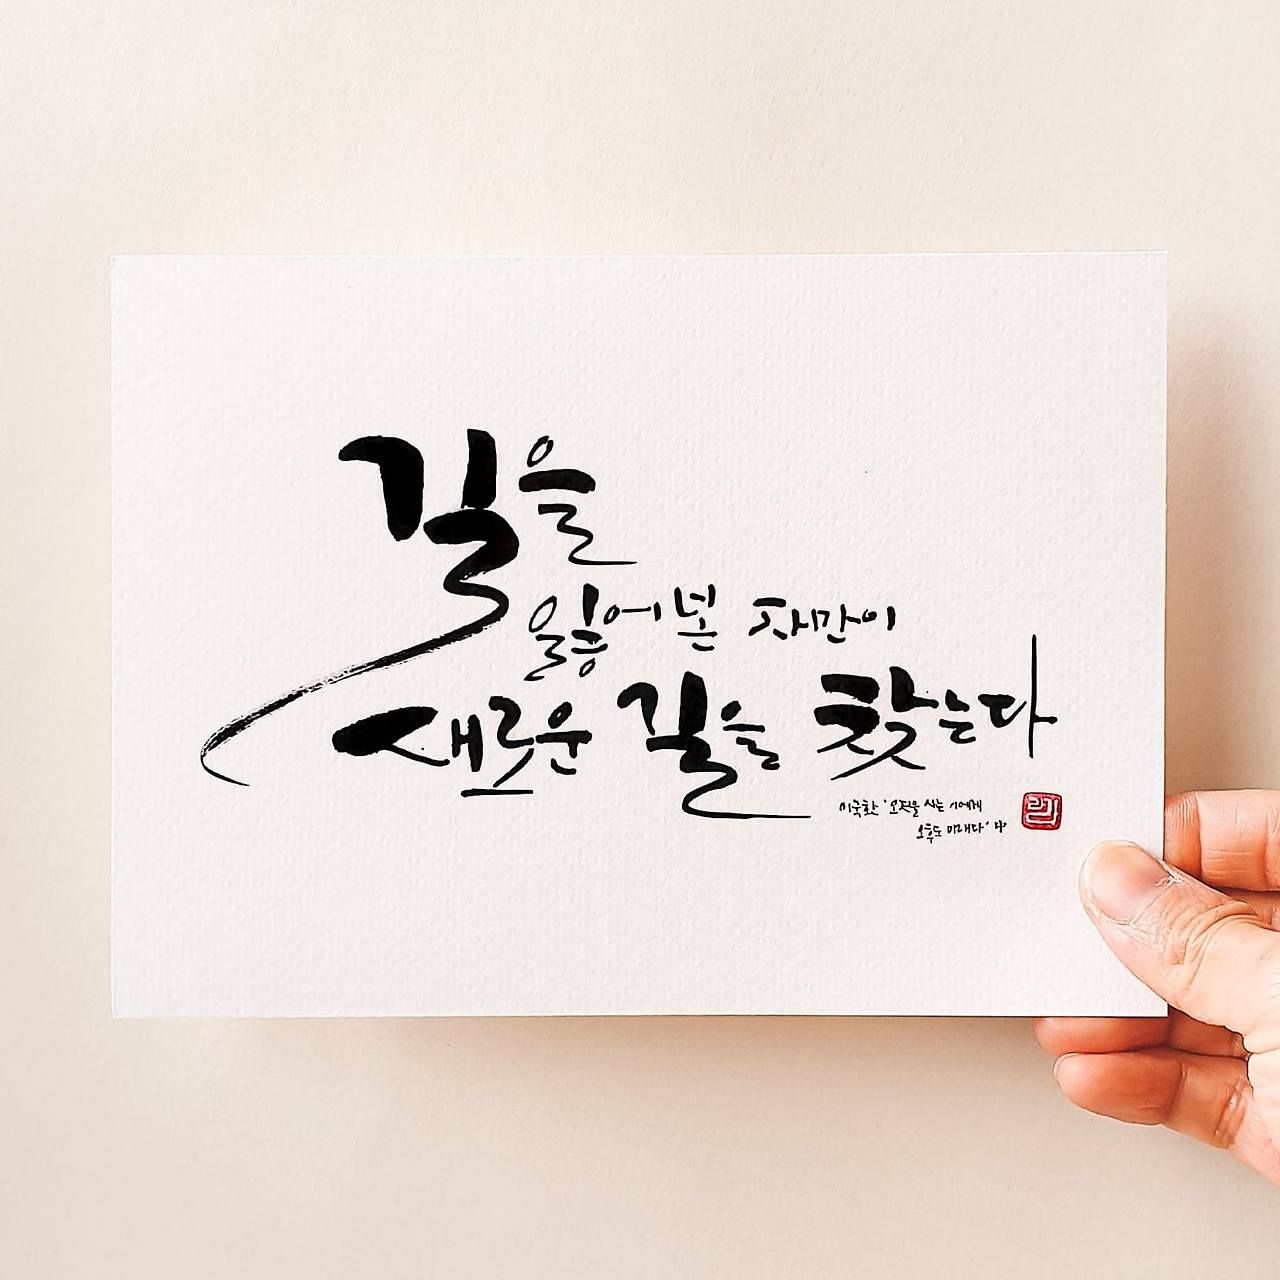 길을
잃어 본 자만이
새로운 길을 찾는다
이국환 '오전을 사는 이에게
오후도 미래다' 中